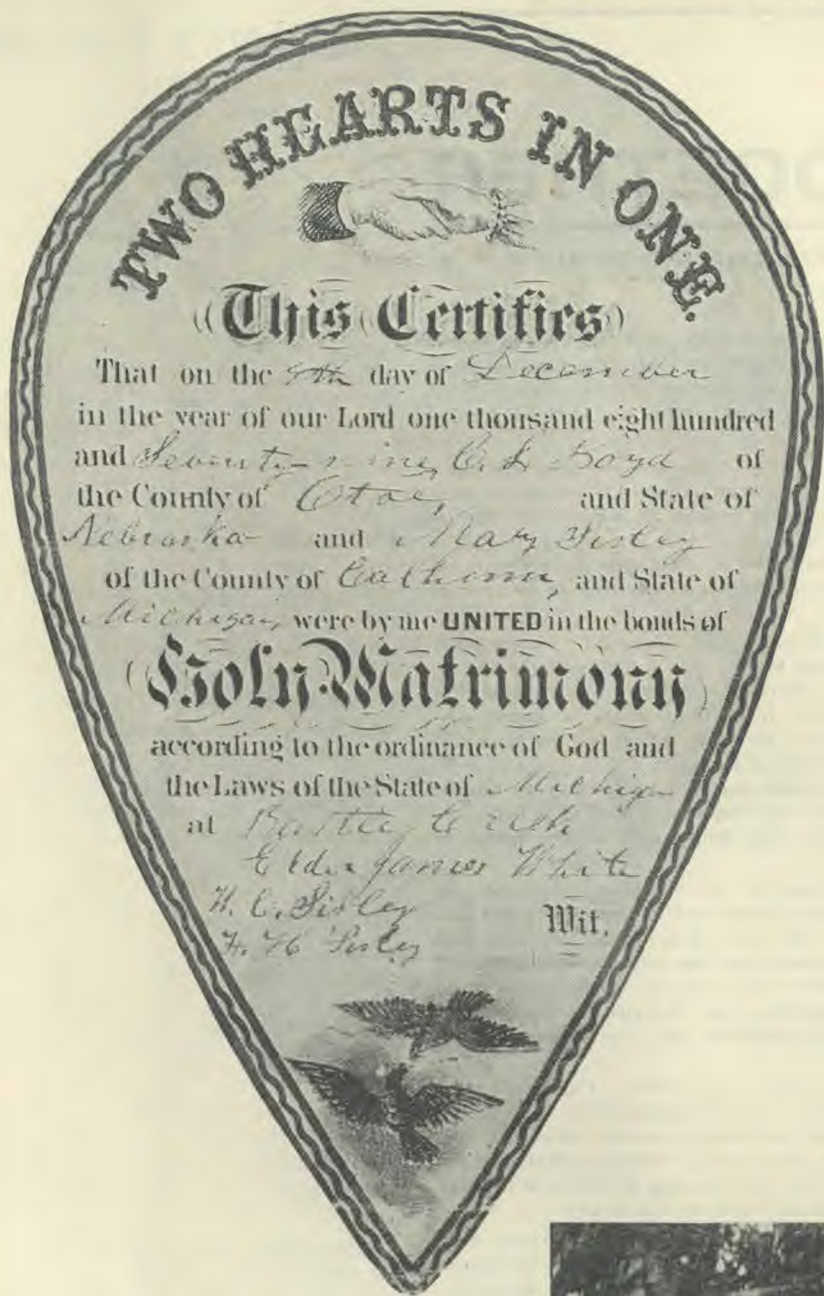 TWO HEARTS IN ONE.
This Certifies
That on the 8th day of December
in the year of our Lord one thousand eight hundred
and Seventy-nine, C. L. Boyd of
the County of Otoe, and State of
Nebraska and Mary Sisley
of the County of Calhoun, and State of
Michigan, were by me UNITED in the bonds of
Holy Matrimony
according to the ordinance of God and
the Laws of the State of Michigan
at Battle Creek
Elder James White
W. C. Sisley
Wit.
Sisley